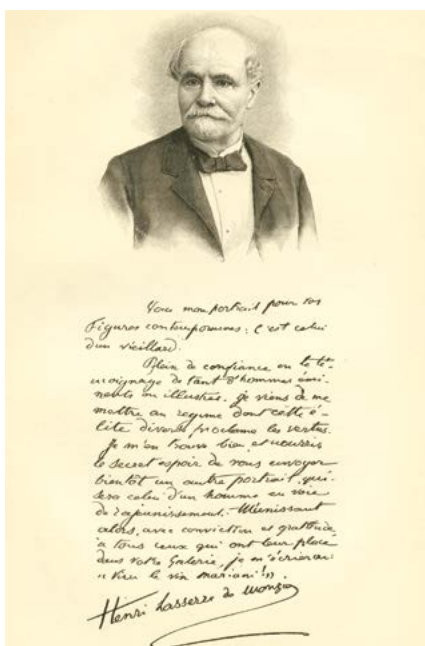 Voici mon portrait pour vos
Figures contemporaines: c'est celui
d'un vieillard.
Plein de confiance en le té-
moignage de tant d'hommes émi-
nents ou illustres, je viens de me
mettre au régime dont cette é-
lite diverse proclame les vertus.
Je m'en trouve bien, et nourris
le secret espoir de vous envoyer
bientôt un autre portrait, qui
sera celui d'un homme en voie
de rajeunissement. M'unissant
alors, avec conviction et gratitude,
à tous ceux qui ont leur place
dans votre Galerie, je m'écrierai
"Vive le vin mariani!".
Henri Lasserre de Monzie